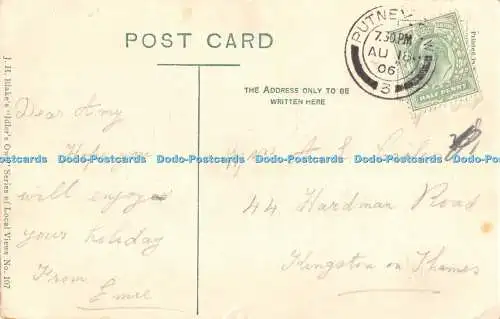 POST CARD
PUTNEY
7.30PM
AU 18
06
3
HALF PENNY
Printed in
THE ADDRESS ONLY TO BE
WRITTEN HERE
J. H. Blake's "Idler's Own" Series of Local Views No. 107
Dear Amy
Hope you
will enjoy
your holiday
From
Dodo-Postcards Dodo-Postcards Dodo-Postcards Dodo-Postcards Dodo-Postcards
44 Hardman Road
Kingston on Thames